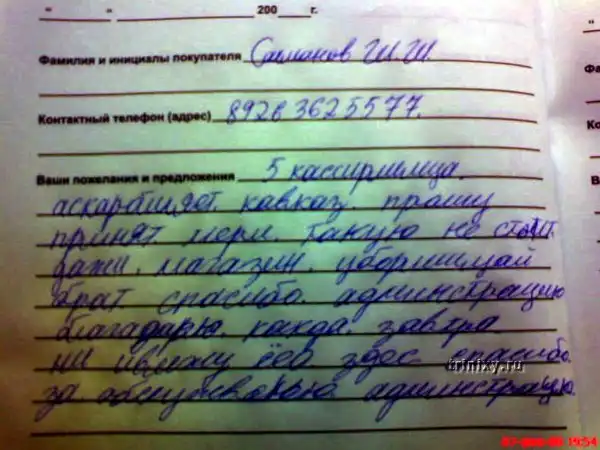 "___" ___ 200___ г.
Фамилия и инициалы покупателя Салманов Ш.Ш.
Контактный телефон (адрес) 89263625577.
Ваши пожелания и предложения 5 кассиршица.
аскарбляет. кавказ. прошу
принят. мери. такую не стоит.
дажи. магазин. уборшицай
брат спасибо администрацию
благадарю. когда. завтра
ни увижу ёво здес спасибо
за обслуживаню администрацую.
trinixy.ru
19:54
"
Фа
Ко
В